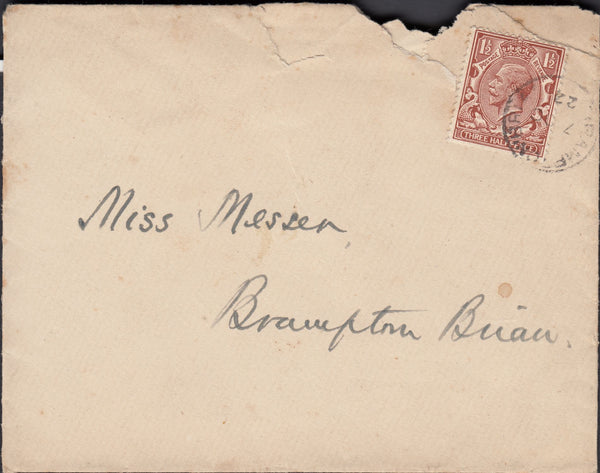 1½ 1½
POSTAGE REVENUE
THREE HALF
22
7
Miss Messer,
Brampton Brian.